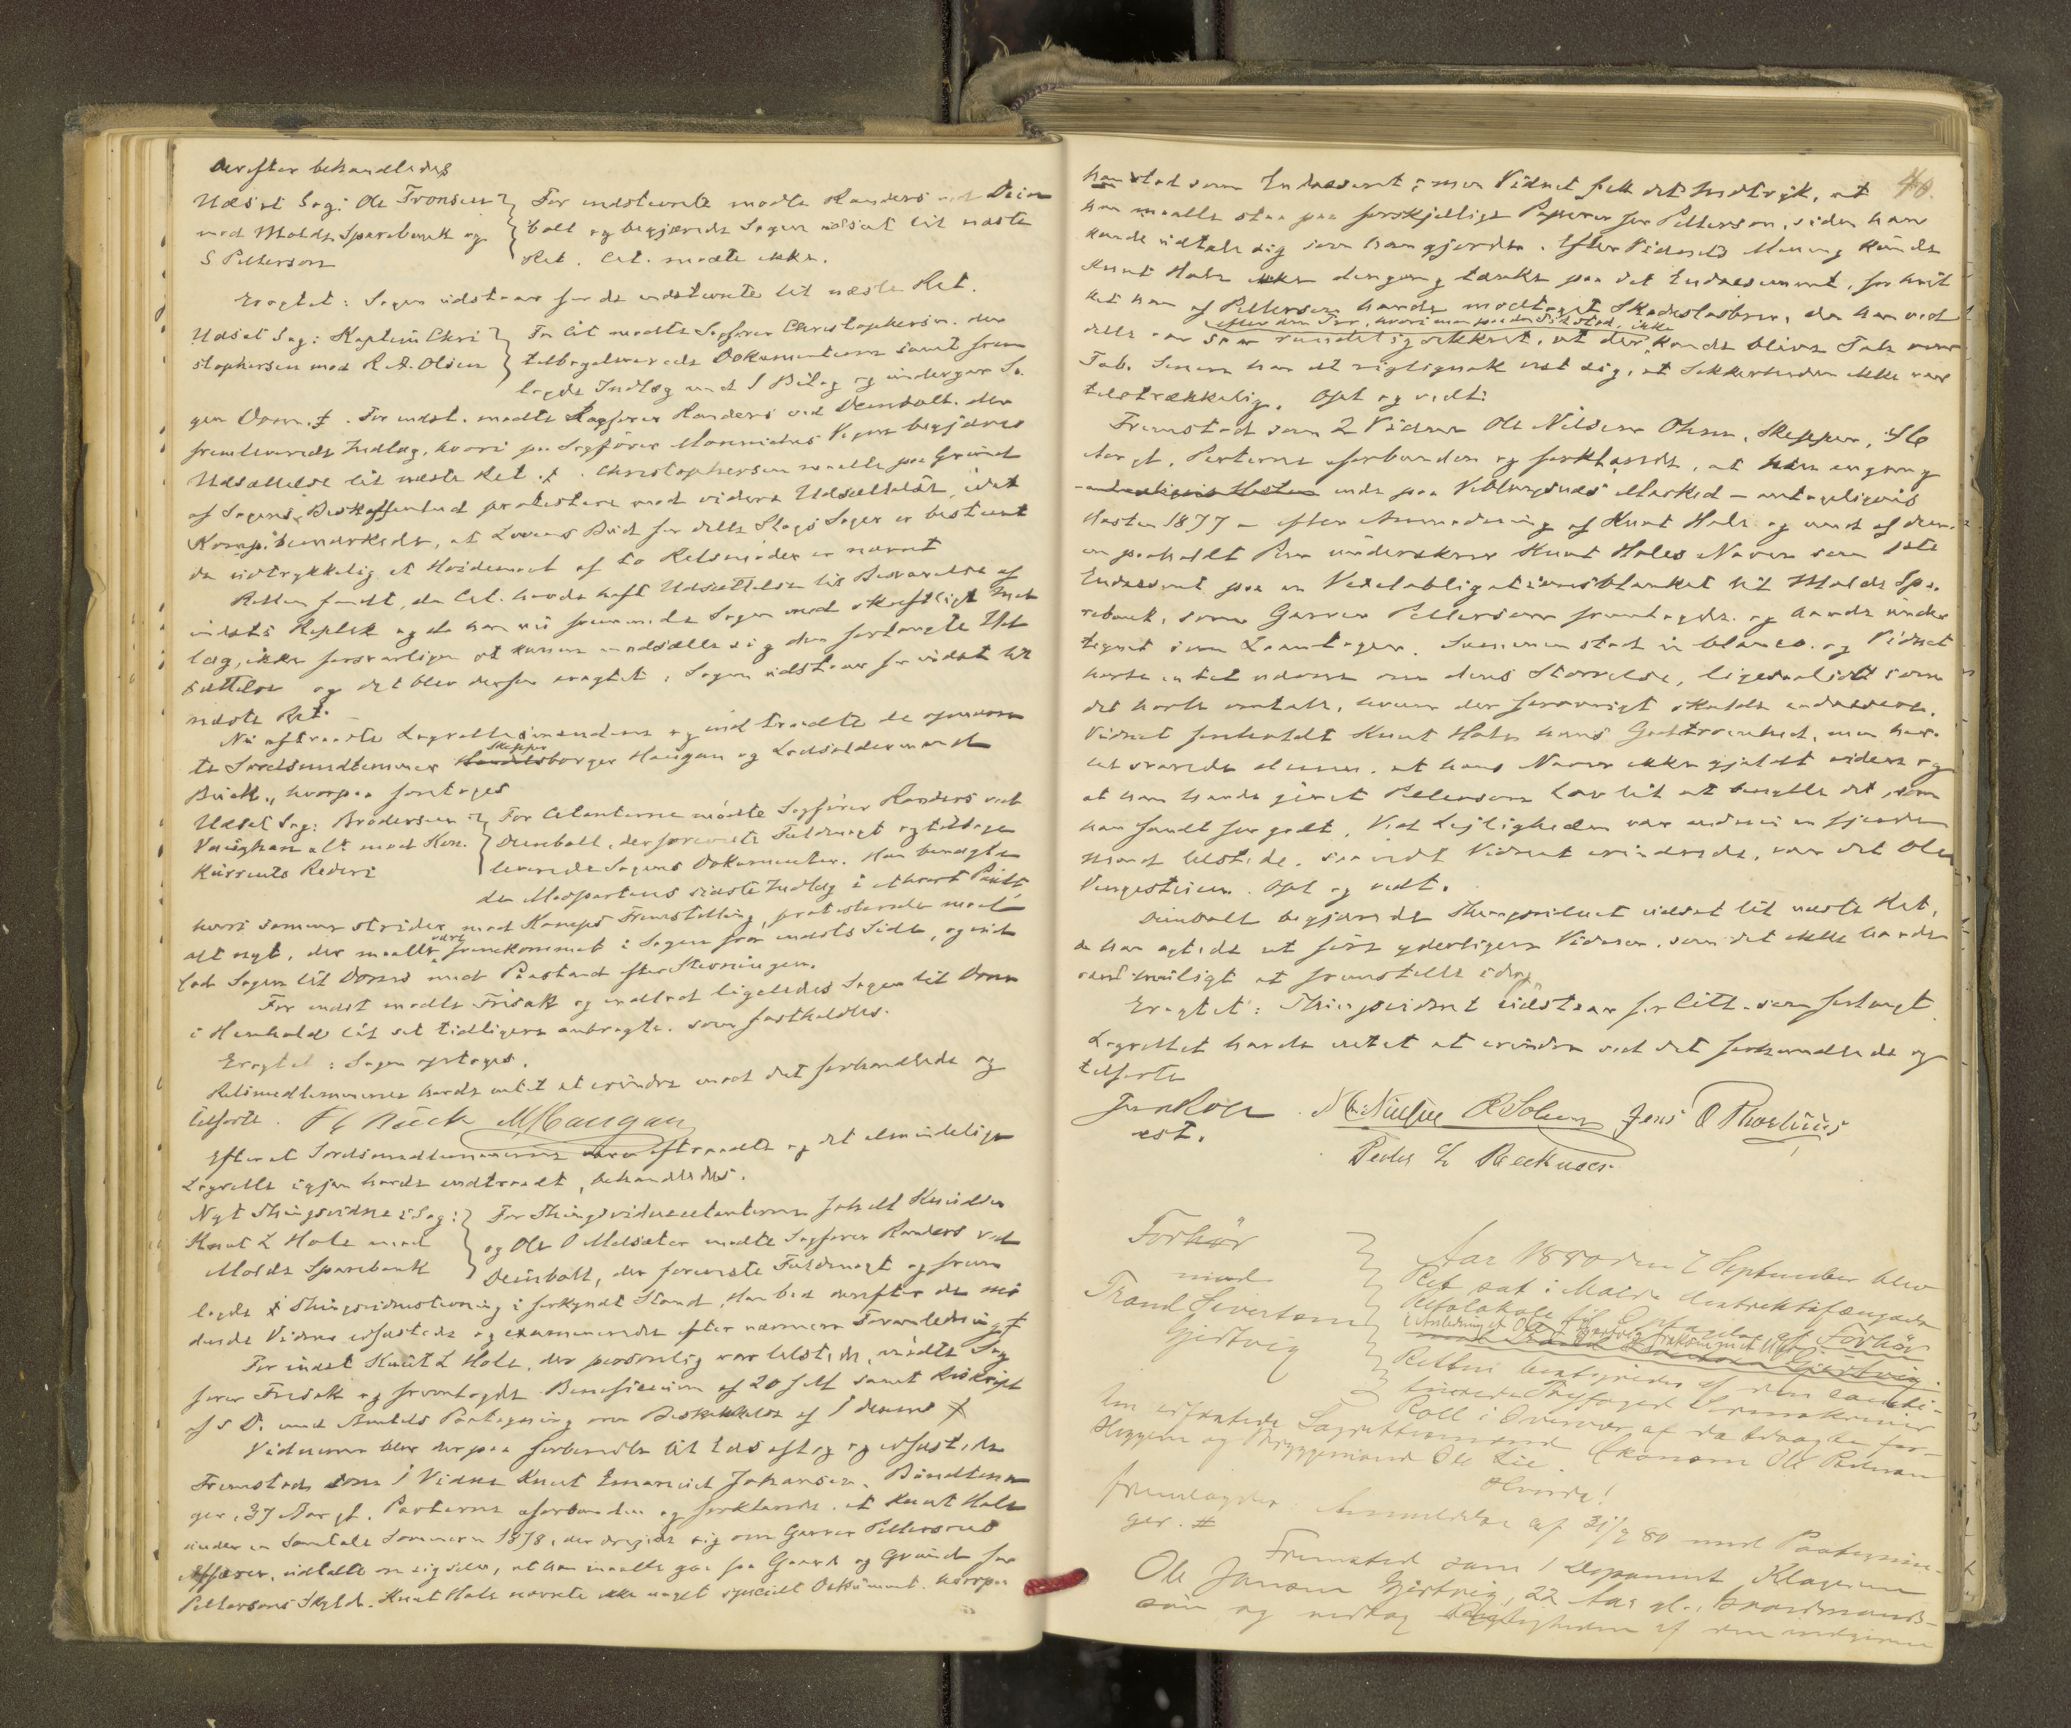 Derefter behandledes
Udsat Sag: Ole Tronsen
mod Molde Sparebank og
S Pettersen
For indstevnte mødte Randers ved Dein
bolt og begjærede Sagen udsat til næste
Ret. Cit. mødte ikke.
Eragtet: Sagen udstaar for de indstevnte til næste Ret.
Udsat Sag: Kaptein Chri
stophersen mod R. A. Olsen
For Cit mødte Sagfører Christophersen. der
tilbageleverede Dokumenterne samt frem
lagde Indlæg med 1 Bilag og indgav Sa-
gen Dom. ‡. For indst. mødte Sagfører Randers ved Deinbolt. der
fremleverede Indlæg, hvori paa Sagfører Vegne begjæres
Udsættelse til næste Ret ‡. Christophersen maatte paa Grund
af Sagens Beskaffenhed protestere mod videre Udsættelse, idet
Komp. bemærkede, at Lovens Bud for dette Slags Sager er bestemt
da udtrykkelig et af to Retsmøder er nævnt
Retten fandt, da Cit. havde haft Udsættelse til Besvarelse af
indsts Replik og da han nu fremmede Sagen med skriftligt Ind
læg, ikke forsvarligen at kunne modsætte sig den forlangte Ud
sættelse og det blev derfor eragtet: Sagen udstaar for indst til
næste Ret.
Nu aftraadte Lagrettesmændene og indtraadte de opnævn
te Sødsmedlemmer Skipper borger Haugan og Lodsoldermand
Buch, hvorpaa foretoges
Udsat Sag: Brodersen
Vaughan alt mod Kon.
Kurrents Rederi
For Citanterne mødte Sagfører Randers ved
Deinbolt, der foreviste Fuldmagt og tilbage
leverede Sagens Dokumenter. Han benægte
de Modpartens sidste Indlæg i ethvert Punkt,
hvori samme strider mod Komps Fremstilling, protesterede mod
alt nyt, der maatte være fremkommet i Sagen fra indsts Side, og ind
lod Sagen til Doms med Paastand efter Stevningen.
For indst mødte Frisak og indlod ligeledes Sagen til Dom
i Henhold til det tidligere anbragte. som fastholdtes.
Eragtet: Sagen optages.
Retsmedlemmerne havde intet at erindre mod det forhandlede og
tilførte. F C Buch M Haugan
Efterat Sødsmedlemmerne var aftraadte og det almindelige
Lagrette igjen havde indtraadt, behandledes.
Nyt Thingsvidne i Sag:
Knut L Hole mod
Molde Sparebank
For Thingsvidnecitanterne Knudsen
og Ole O Melsæter mødte Sagfører Randers ved
Deinbolt, der foreviste Fuldmagt og frem
lagde Thingsvidnestevning i forkyndt Stand. Han bad derefter de mø
dende Vidner edfæstede og examinerede efter nærmere Foranledning. ‡
For indst Knut L Hole, der personlig var tilstede, mødte Sag
fører Frisak og fremlagde Beneficium af 20 f M samt Reskript
af s D. med Amtets Paategning om Beskikkelse af 1 dennes ‡
Vidnerne blev derpaa forberedte til Eds aflæg og edfæstede
Fremstod som 1 Vidne Knut Emanuel Johansen, Bundtma
ger, 37 Aar gl. Parterne uforbunden og forklarede. at Knut Hole
under en Samtale Sommeren 1878, der dreiede sig om Garver Pettersens
Affærer, udtalte om sig selv, at han maatte gaa fra Gaard og Grund for
Pettersens Skyld. Knut Hole nævnte ikke noget specielt Dokument. hvorpaa
40.
han stod som Endossent; men Vidnet fik det Indtryk, at
han maatte staa paa forskjellige Papirer for Pettersen, siden han
kunde udtale sig som han gjorde. Efter Vidnets Mening kunde
Knut Hole ikke dengang tænke paa det Endossement, for hvil
ket han af Pettersen havde modtaget Skadesløsbrev, da han ved
efter den Tro, hvori man paa den Tid stod, ikke
dette var saa rundelig sikkret, at der kunde blive Tale om
Tab. Senere har det rigtignok vist sig, at Sikkerheden ikke var
tilstrækkelig. Opl og vedt:
Fremstod som 2 Vidne Ole Nilsen Ohren, Skipper, 46
Aar gl. Parterne uforbunden og forklarede, at han engang
inde paa Veblungsnæs Marked – antageligvis
Høsten 1877 – efter Anmodning af Knut Hole og med af den-
ne paaholdt Pen underskrev Knut Holes Navn som 1ste
Endossent paa en Vexelobligationsblanket til Molde Spa-
rebank, som Garver Pettersen fremlagde og havde under
tegnet som Laantager. Summen stod in blanco. og Vidnet
hørte intet nævne om dens Størrelse, ligesaalidt som
det hørte omtale, hvem der forøvrigt skulde endossere.
Vidnet foreholdt Knut Hole hans Godtroenhed, men her-
til svarede denne. at hans Navn ikke gjaldt videre og
at han havde givet Pettersen Lov til at benytte det, som
han fandt for godt. Ved Leiligheden var endnu en fjerde
Mand tilstede. saavidt Vidnet erindrede, var det Ole
Vengestuen. Opl og vedt.
Deinbolt begjærede Thingsvidnet udsat til næste Ret,
da han agtede at føre yderligere Vidner. som det ikke havde
været muligt at fremstille idag
Eragtet: Thingsvidnet udstaar for Citt. som forlangt
Lagrettet havde intet at erindre ved det forhandlede og
tilførte
Jens Roll
cst.
N Nielsen O Solem Jens O Thorhuus
Peder L Bækken
Forhør
mod
Trond Sivertsen
Gjertvig
Aar 1880 den 7 September blev
Ret sat i Molde Distriktsfængsels
Retslokale til Optagelse af Forhør
i Anledning af Ole J Gjertvig fremkomne
mod Trond Sivertsen Gjertvig.
Retten betjentes af den consti-
tuerede Byfoged
Roll i Overvær af de til dagen for-
hen edfæstede Lagrettesmænd Økonom Ole Pedersen
Heggem og Bryggemand Ole Lie.
Hvorda!
Fremlagdes: Anmeldelse af 31/7 80 med Paategnin-
ger. #
Fremstod som 1 Deponent Klageren
Ole Jonsen Gjertvig, 22 Aar gl., Gaardmands-
søn og vedtog Rigtigheden af den indgivne